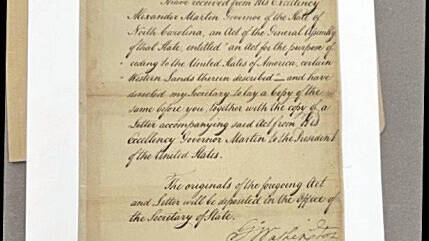 I have received from His Excellency
Alexander Martin Governor of the State of
North Carolina, an Act of the General Assembly
of that State, entitled "an Act for the purpose of
ceding to the United States of America, certain
Western Lands therein described — and have
directed my Secretary to lay a Copy of the
same before you, together with the copy of a
Letter accompanying said Act from His
Excellency Governor Martin to the President
of the United States.
The originals of the foregoing Act
and Letter will be deposited in the Office of
the Secretary of State.
G. Washington